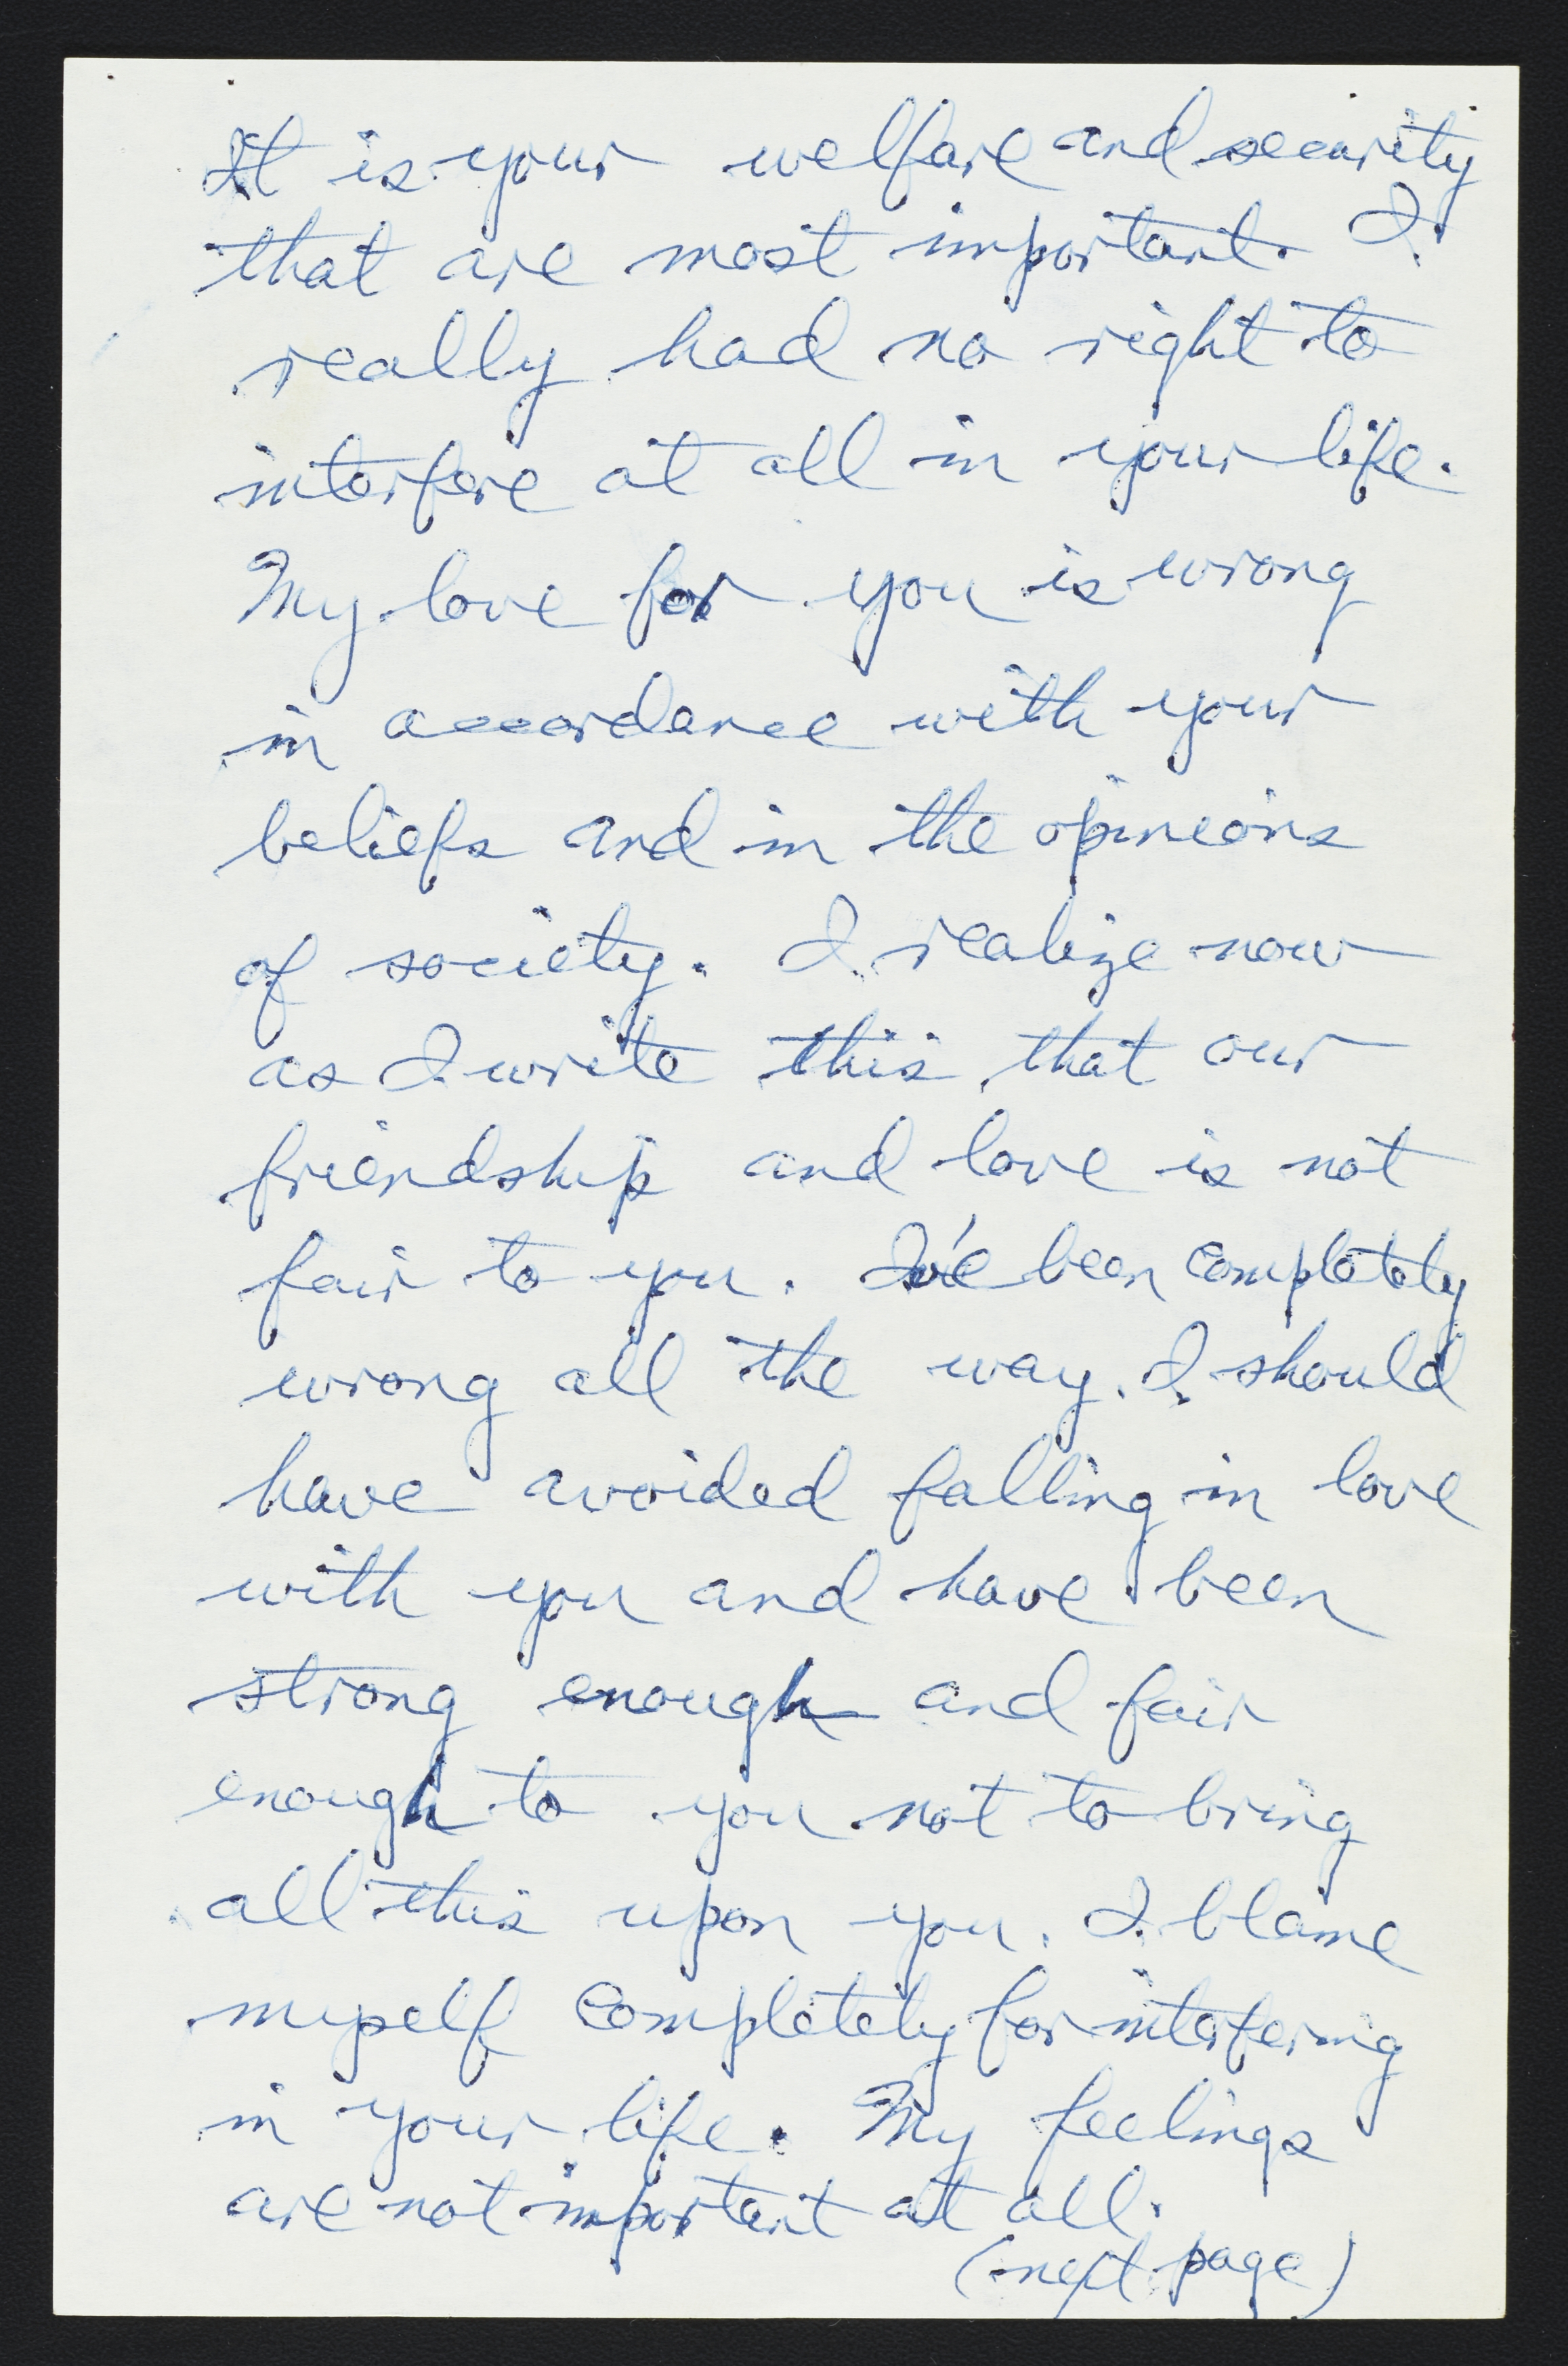 It is your welfare and security
that are most important. I
really had no right to
interfere at all in your life.
My love for you is wrong
in accordance with your
beliefs and in the opinions
of society. I realize now
as I write this, that our
friendship and love is not
fair to you. I've been completely
wrong all the way. I should
have avoided falling in love
with you and have been
strong enough and fair
enough to you not to bring
all this upon you. I blame
myself completely for interfering
in your life. My feelings
are not important at all.
(next page)